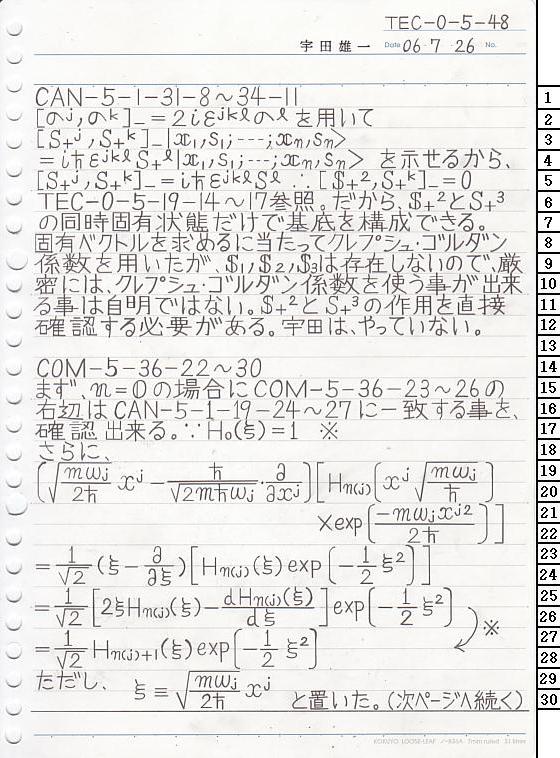 TEC-0-5-48
宇田雄一 Date 06 7 26 No.
CAN-5-1-31-8～34-11
[σʲ, σᵏ]₋ = 2iεʲᵏˡσˡ を用いて
[S₊ʲ, S₊ᵏ]₋|x₁, s₁; ----; xₙ, sₙ>
= iħεʲᵏˡS₊ˡ|x₁, s₁; ----; xₙ, sₙ> を示せるから、
[S₊ʲ, S₊ᵏ]₋ = iħεʲᵏˡSˡ ∴ [$₊², S₊ᵏ]₋ = 0
TEC-0-5-19-14～17参照。だから、$₊²とS₊³
の同時固有状態だけで基底を構成できる。
固有ベクトルを求めるに当たってクレプシュ・ゴルダン
係数を用いたが、$₁, $₂, $₃は存在しないので、厳
密には、クレプシュ・ゴルダン係数を使う事が出来
る事は自明ではない。$₊²とS₊³の作用を直接
確認する必要がある。宇田は、やっていない。
COM-5-36-22～30
まず、n=0の場合にCOM-5-36-23～26の
右辺はCAN-5-1-19-24～27に一致する事を、
確認出来る。∵H₀(ξ)=1 ※
さらに、
(√(mωⱼ/2ħ) xʲ - ħ/√(2mħωⱼ)・∂/∂xʲ)[Hₙ₍ⱼ₎(xʲ√(mωⱼ/ħ))
×exp(-mωⱼxʲ²/2ħ)]
= 1/√2 (ξ - ∂/∂ξ)[Hₙ₍ⱼ₎(ξ)exp(-1/2 ξ²)]
= 1/√2 [2ξHₙ₍ⱼ₎(ξ) - dHₙ₍ⱼ₎(ξ)/dξ]exp(-1/2 ξ²)
※
= 1/√2 Hₙ₍ⱼ₎₊₁(ξ)exp(-1/2 ξ²)
ただし、ξ ≡ √(mωⱼ/2ħ) xʲ と置いた。(次ページへ続く)
KOKUYO LOOSE-LEAF ノ-836A 7mm ruled 31 lines
1
2
3
4
5
6
7
8
9
10
11
12
13
14
15
16
17
18
19
20
21
22
23
24
25
26
27
28
29
30